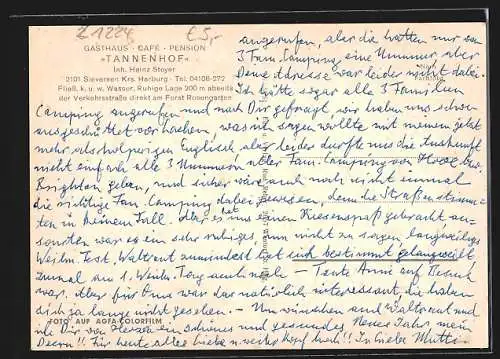 Z 1224
€5,-
GASTHAUS · CAFÉ · PENSION
»TANNENHOF«
Inh. Heinz Stoyer
2101 Sieversen Krs. Harburg · Tel. 04108-272
Fließ. k. u. w. Wasser. Ruhige Lage 200 m abseits
der Verkehrsstraße direkt am Forst Rosengarten
angerufen, aber die hatten nur von
3 Fam. Camping, eine Nummer, aber
Deine Adresse war leider nicht dabei.
Ich hätte sogar alle 3 Familien
Camping angerufen und nach Dir gefragt, wir haben uns schon
ausgeschüttet vor was ich sagen wollte mit meinem jetzt
mehr als holprigen Englisch, aber leider durfte uns die Auskunft
nicht einfach alle 3 Nummern aller Fam. Camping von Hove bzw.
Brighton geben, und sicher wäre auch noch nicht einmal
die richtige Fam. Camping dabei gewesen, denn die Straßen stimm-
ten in keinem Fall. Aber es hat uns einen Riesenspaß gebracht an-
sonsten war es ein sehr ruhiges, um nicht zu sagen, langweiliges
Weihn. Fest, Waltraut zumindest hat sich bestimmt gelangweilt
zumal am 1. Weihn. Tag auch noch — Tante Anni auf Besuch
war. Aber für Oma war das natürlich interessant, die haben
sich ja lange nicht gesehen. — Wir wünschen und Waltraut und
ich Dir von Herzen ein schönes und gesundes Neues Jahr, mein
! Für heute alles Liebe u. weiter Kopf hoch!! In Liebe Mutti
FOTO AUF AGFA-COLORFILM